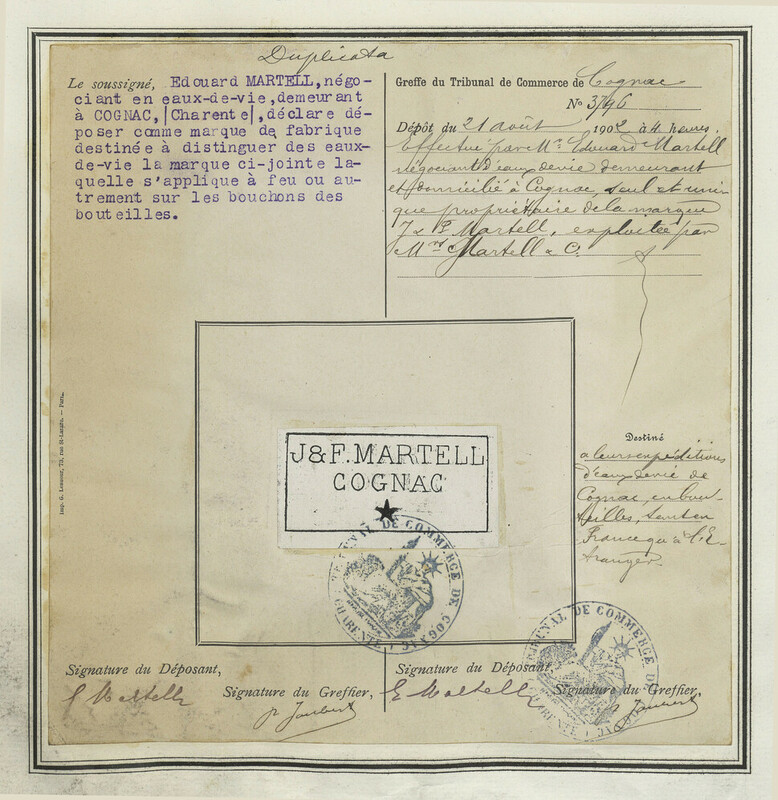 Duplicata
Le soussigné, Edouard MARTELL, négo-
ciant en eaux-de-vie, demeurant
à COGNAC, |Charente|, déclare dé-
poser comme marque de fabrique
destinée à distinguer des eaux-
de-vie la marque ci-jointe la-
quelle s'applique à feu ou au-
trement sur les bouchons des
bouteilles.
Greffe du Tribunal de Commerce de Cognac
No 3746
Dépôt du 21 août 1902 à 4 heures.
Effectué par Mr. Edouard Martell
négociant d'eaux de vie demeurant
et domicilié à Cognac, seul et uni-
que propriétaire de la marque
J & F. Martell, exploitée par
Mrs Martell & C.
Imp. G. Lesueur, 73, rue St-Lazare. — Paris.
J&F. MARTELL
COGNAC
Destiné
à leurs expéditions
d'eaux de vie de
Cognac, en bou-
teilles, tant en
France qu'à l'É-
tranger.
TRIBUNAL DE COMMERCE DE COGNAC
CHARENTE
TRIBUNAL DE COMMERCE DE COGNAC
CHARENTE
Signature du Déposant,
E Martell
Signature du Greffier,
p Jaubert
Signature du Déposant,
E Martell
Signature du Greffier,
p Jaubert